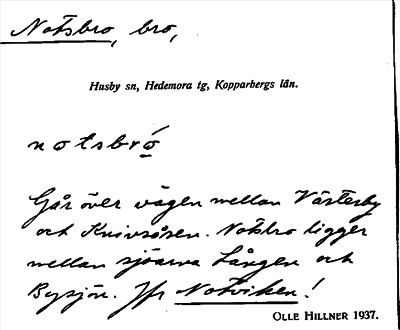 Notsbro, bro,
Husby sn, Hedemora tg, Kopparbergs län.
notsbró
Går över vägen mellan Västerby
och Knivsåsen. Notsbro ligger
mellan sjöarna Lången och
Bysjön. Jfr Notviken!
OLLE HILLNER 1937.